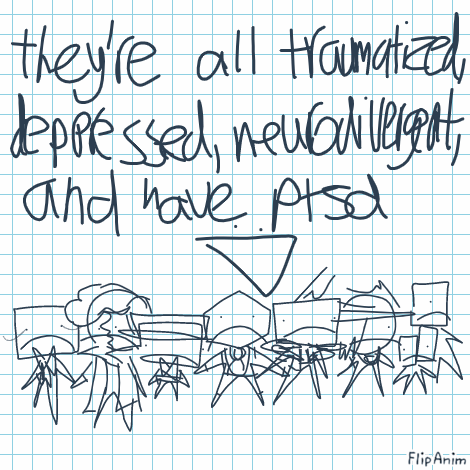 they're all traumatized,
depressed, neurodivergent,
and have ptsd
FlipAnim